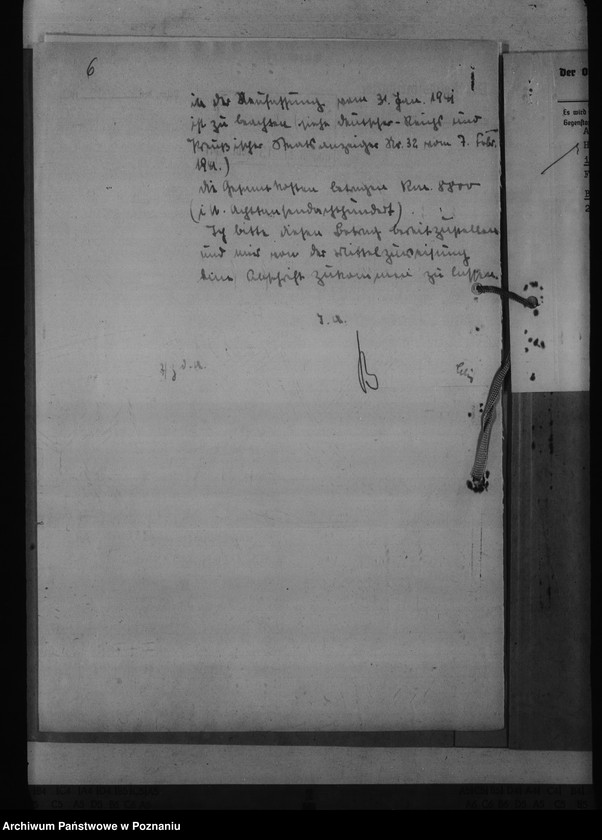 6
in der Neufassung vom 31. Jan. 1941
ist zu beachten siehe Deutscher-Reichs und
Preußischer Staatsanzeiger Nr. 32 vom 7. Febr.
1941.)
die Gesamtkosten betragen Rm. 8800
(i. W. Achttausendachthundert).
Ich bitte diesen Betrag bereitzustellen
und mir von der Mittelzuweisung
eine Abschrift zukommen zu lassen.
I. A.
z. d. A.
Der O
Es wird
Gegenstan
Archiwum Państwowe w Poznaniu